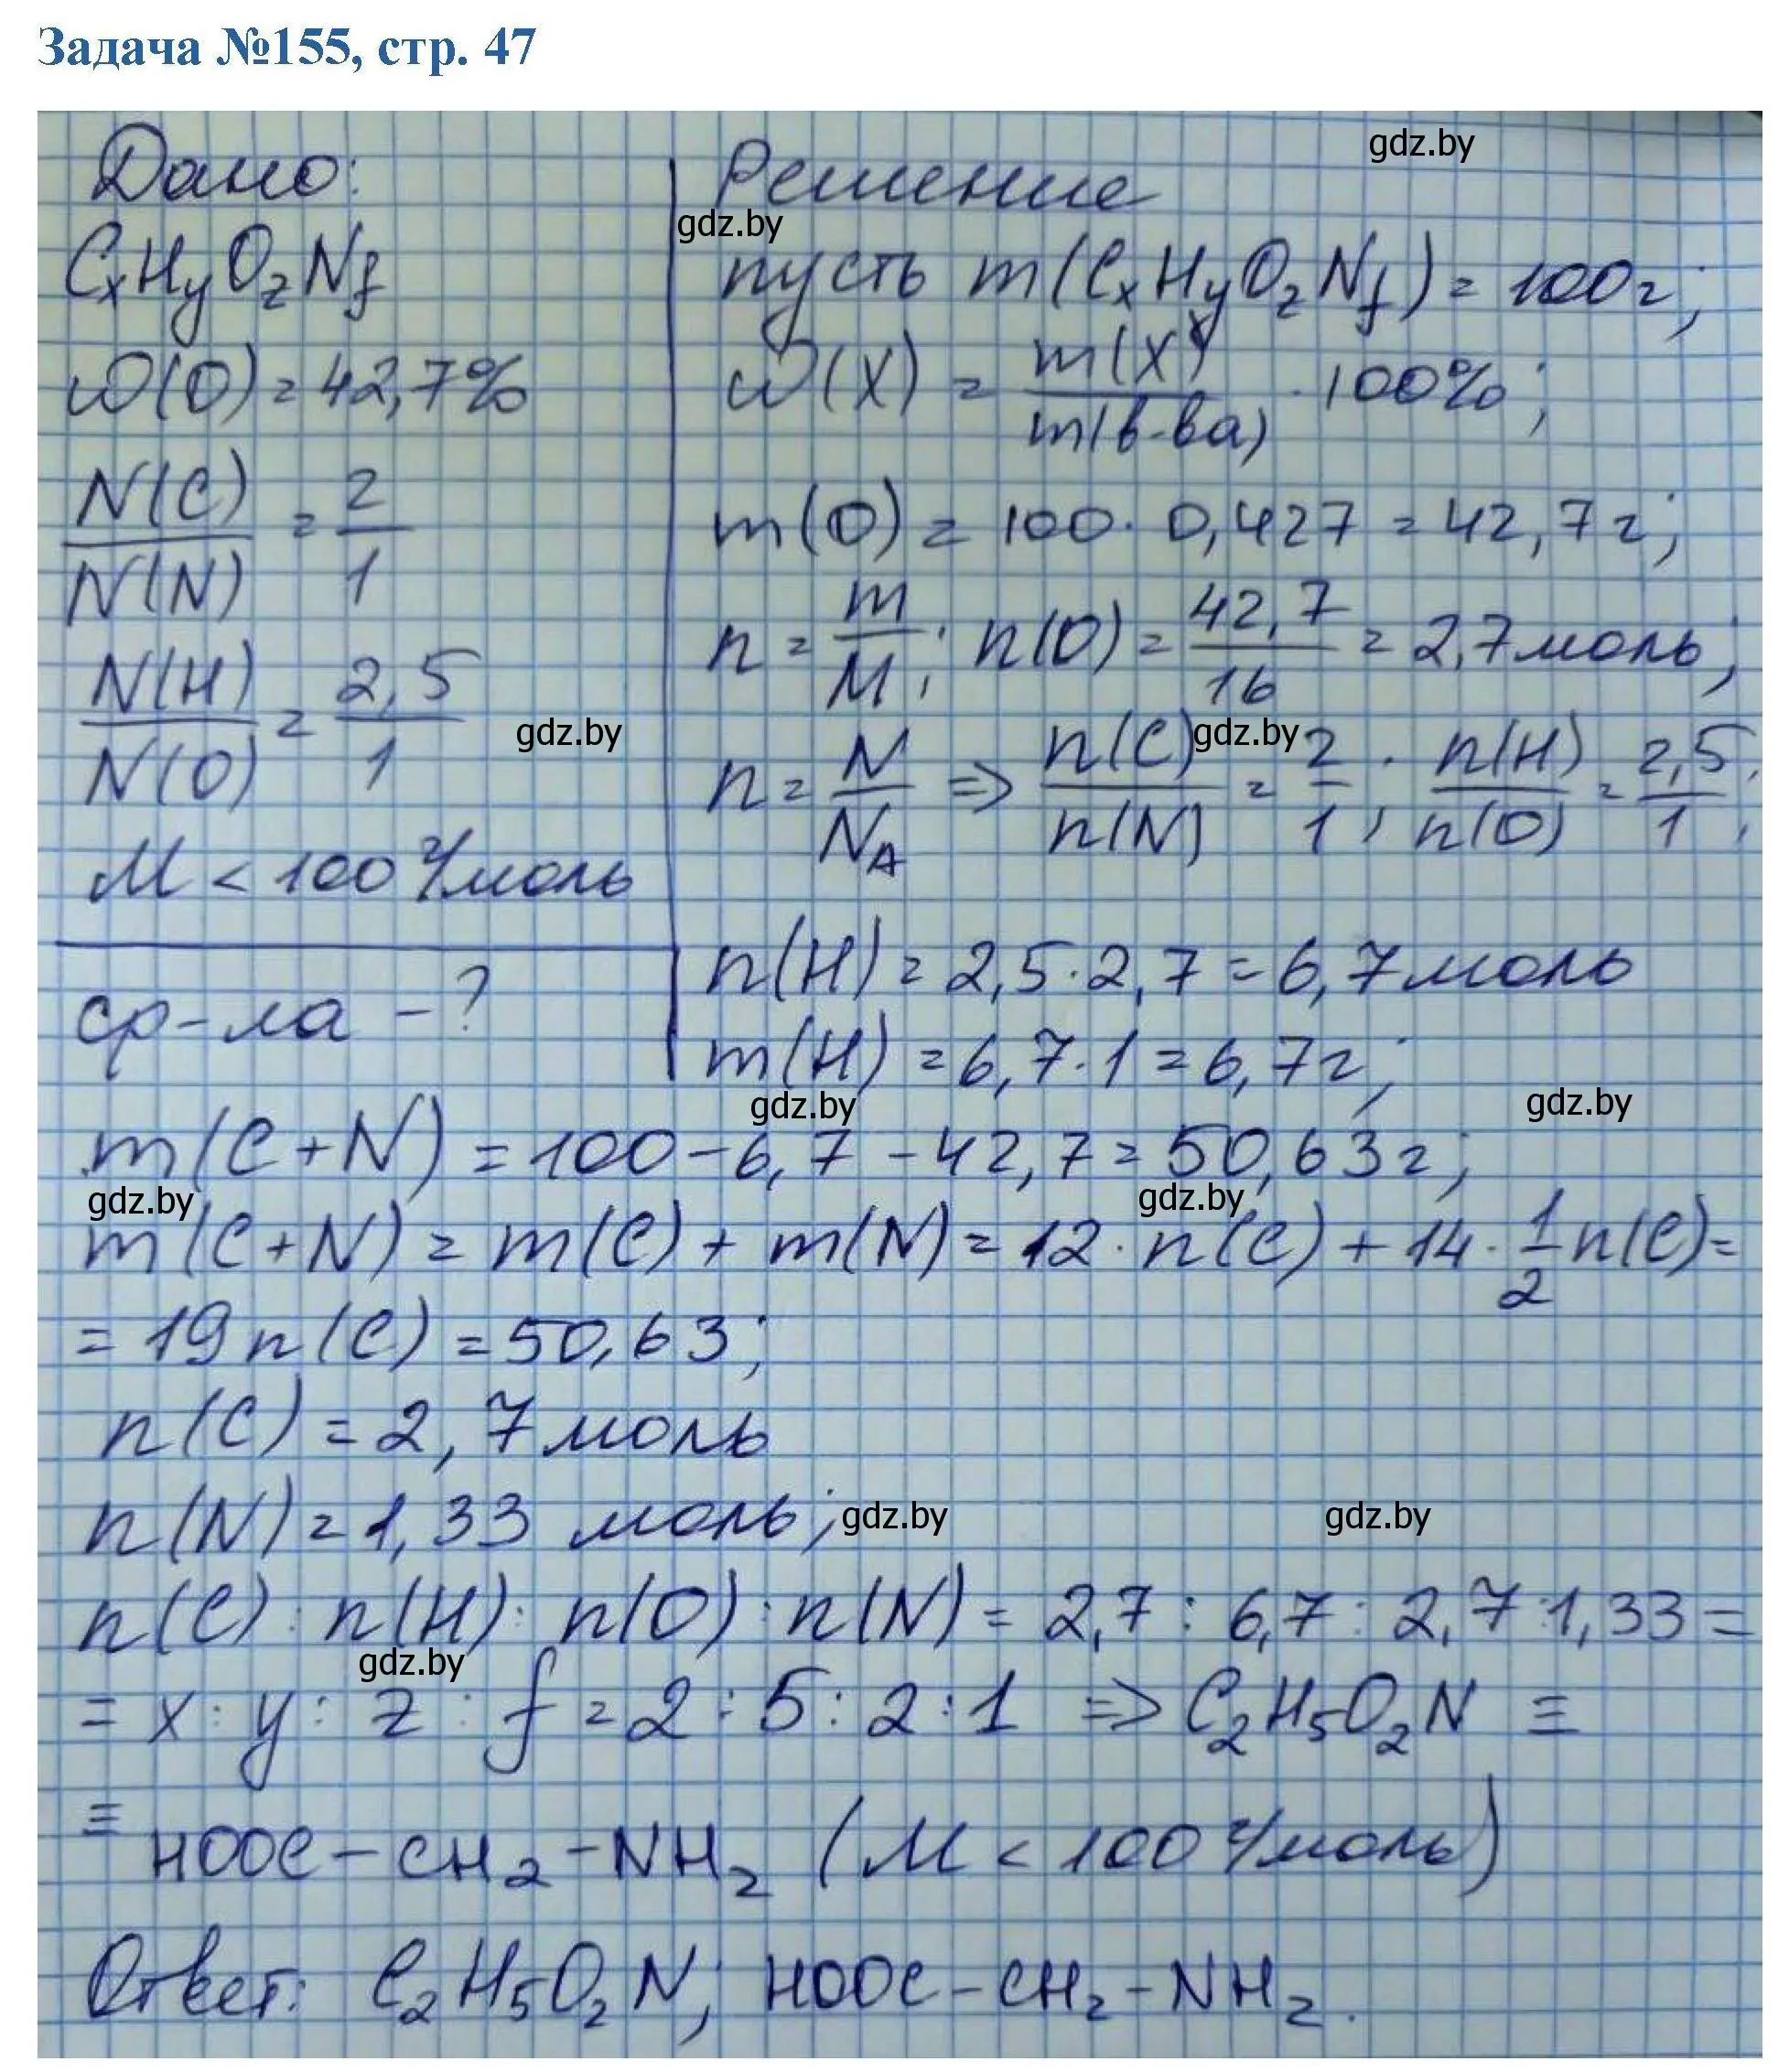 Задача №155, стр. 47
Дано:
CₓHᵧO_zN_f
ω(O) = 42,7%
N(C)/N(N) = 2/1
N(H)/N(O) = 2,5/1
M < 100 г/моль
ф-ла - ?
Решение
gdz.by
gdz.by
пусть m(CₓHᵧO_zN_f) = 100г;
ω(X) = m(X)/m(в-ва) · 100%;
m(O) = 100 · 0,427 = 42,7г;
n = m/M; n(O) = 42,7/16 = 2,7моль;
gdz.by
gdz.by
n = N/N_A => n(C)/n(N) = 2/1; n(H)/n(O) = 2,5/1;
n(H) = 2,5 · 2,7 = 6,7моль
m(H) = 6,7 · 1 = 6,7г;
gdz.by
gdz.by
m(C+N) = 100 - 6,7 - 42,7 = 50,63г;
gdz.by
gdz.by
m(C+N) = m(C) + m(N) = 12 · n(C) + 14 · 1/2 n(C) =
= 19n(C) = 50,63;
n(C) = 2,7моль
n(N) = 1,33 моль;
gdz.by
gdz.by
n(C) : n(H) : n(O) : n(N) = 2,7 : 6,7 : 2,7 : 1,33 =
gdz.by
= x : y : z : f = 2 : 5 : 2 : 1 => C₂H₅O₂N ≡
≡ HOOC-CH₂-NH₂ (M < 100 г/моль)
Ответ: C₂H₅O₂N; HOOC-CH₂-NH₂.